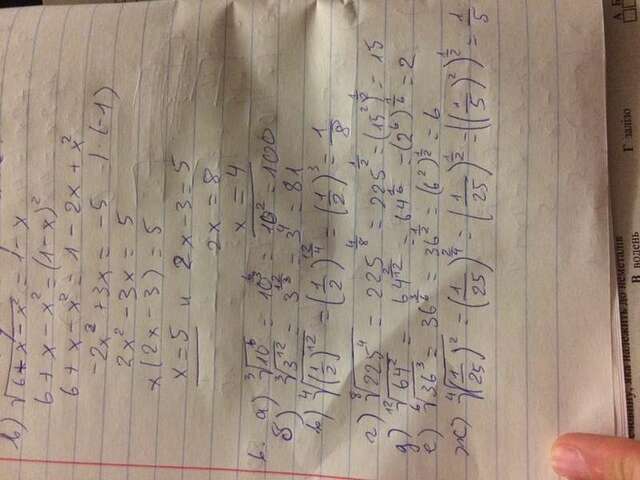 в) √(6+x-x²) = 1-x
6+x-x² = (1-x)²
6+x-x² = 1-2x+x²
-2x²+3x = -5 | ·(-1)
2x²-3x = 5
x(2x-3) = 5
x=5 и 2x-3=5
2x = 8
x = 4
6. а) ³√(10⁶) = 10^(6/3) = 10² = 100
б) ³√(3¹²) = 3^(12/3) = 3⁴ = 81
в) ⁴√((1/2)¹²) = (1/2)^(12/4) = (1/2)³ = 1/8
г) ⁸√(225⁴) = 225^(4/8) = 225^(1/2) = (15²)^(1/2) = 15
д) ¹²√(64²) = 64^(2/12) = 64^(1/6) = (2⁶)^(1/6) = 2
е) ⁶√(36³) = 36^(3/6) = 36^(1/2) = (6²)^(1/2) = 6
ж) ⁴√((1/25)²) = (1/25)^(2/4) = (1/25)^(1/2) = ((1/5)²)^(1/2) = 1/5
яка належить до неметалів
В водень Г залізо
А Б